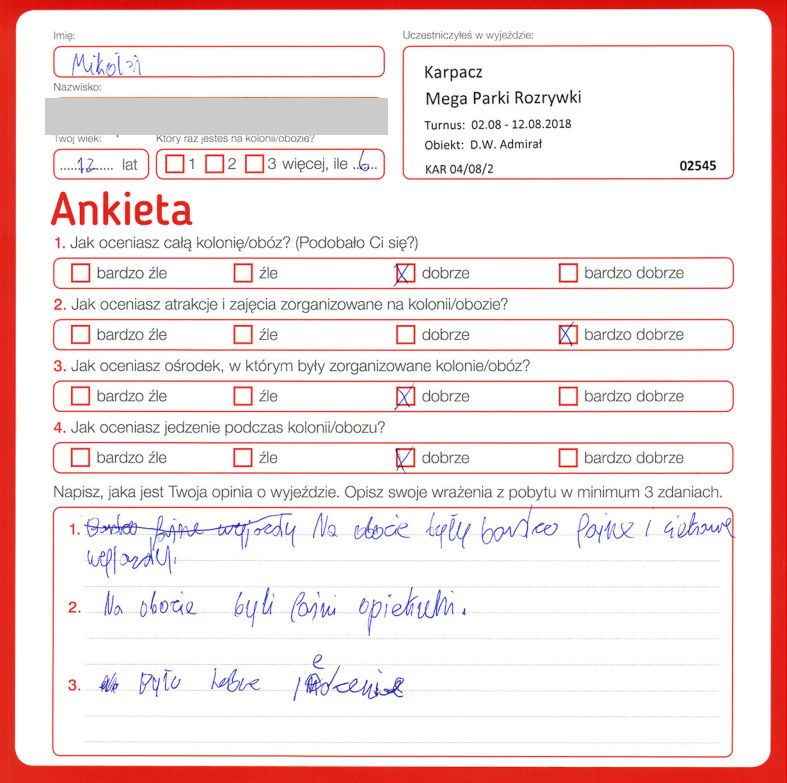 Imię:
Mikołaj
Nazwisko:
Twój wiek:
12 lat
Który raz jesteś na kolonii/obozie?
1 2 3 więcej, ile 6
Uczestniczyłeś w wyjeździe:
Karpacz
Mega Parki Rozrywki
Turnus: 02.08 - 12.08.2018
Obiekt: D.W. Admirał
KAR 04/08/2 02545
Ankieta
1. Jak oceniasz całą kolonię/obóz? (Podobało Ci się?)
bardzo źle źle dobrze bardzo dobrze
2. Jak oceniasz atrakcje i zajęcia zorganizowane na kolonii/obozie?
bardzo źle źle dobrze bardzo dobrze
3. Jak oceniasz ośrodek, w którym były zorganizowane kolonie/obóz?
bardzo źle źle dobrze bardzo dobrze
4. Jak oceniasz jedzenie podczas kolonii/obozu?
bardzo źle źle dobrze bardzo dobrze
Napisz, jaka jest Twoja opinia o wyjeździe. Opisz swoje wrażenia z pobytu w minimum 3 zdaniach.
1. fajne wyjazdy Na obozie były bardzo fajne i ciekawe
wyjazdy.
2. Na obozie byli fajni opiekuni.
3. Było dobre jedzenie